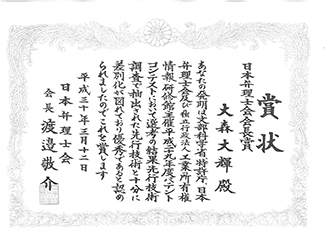 賞状
日本弁理士会会長賞
大森大輝 殿
あなたの発明は文部科学省、特許庁、日本
弁理士会及び独立行政法人工業所有権
情報・研修館主催平成二十九年度パテント
コンテストにおいて選考の結果先行技術
調査で抽出された先行技術と十分に
差別化が図れており優秀であると認め
られましたのでこれを賞します
平成三十年三月十二日
日本弁理士会
会長 渡邉敬介